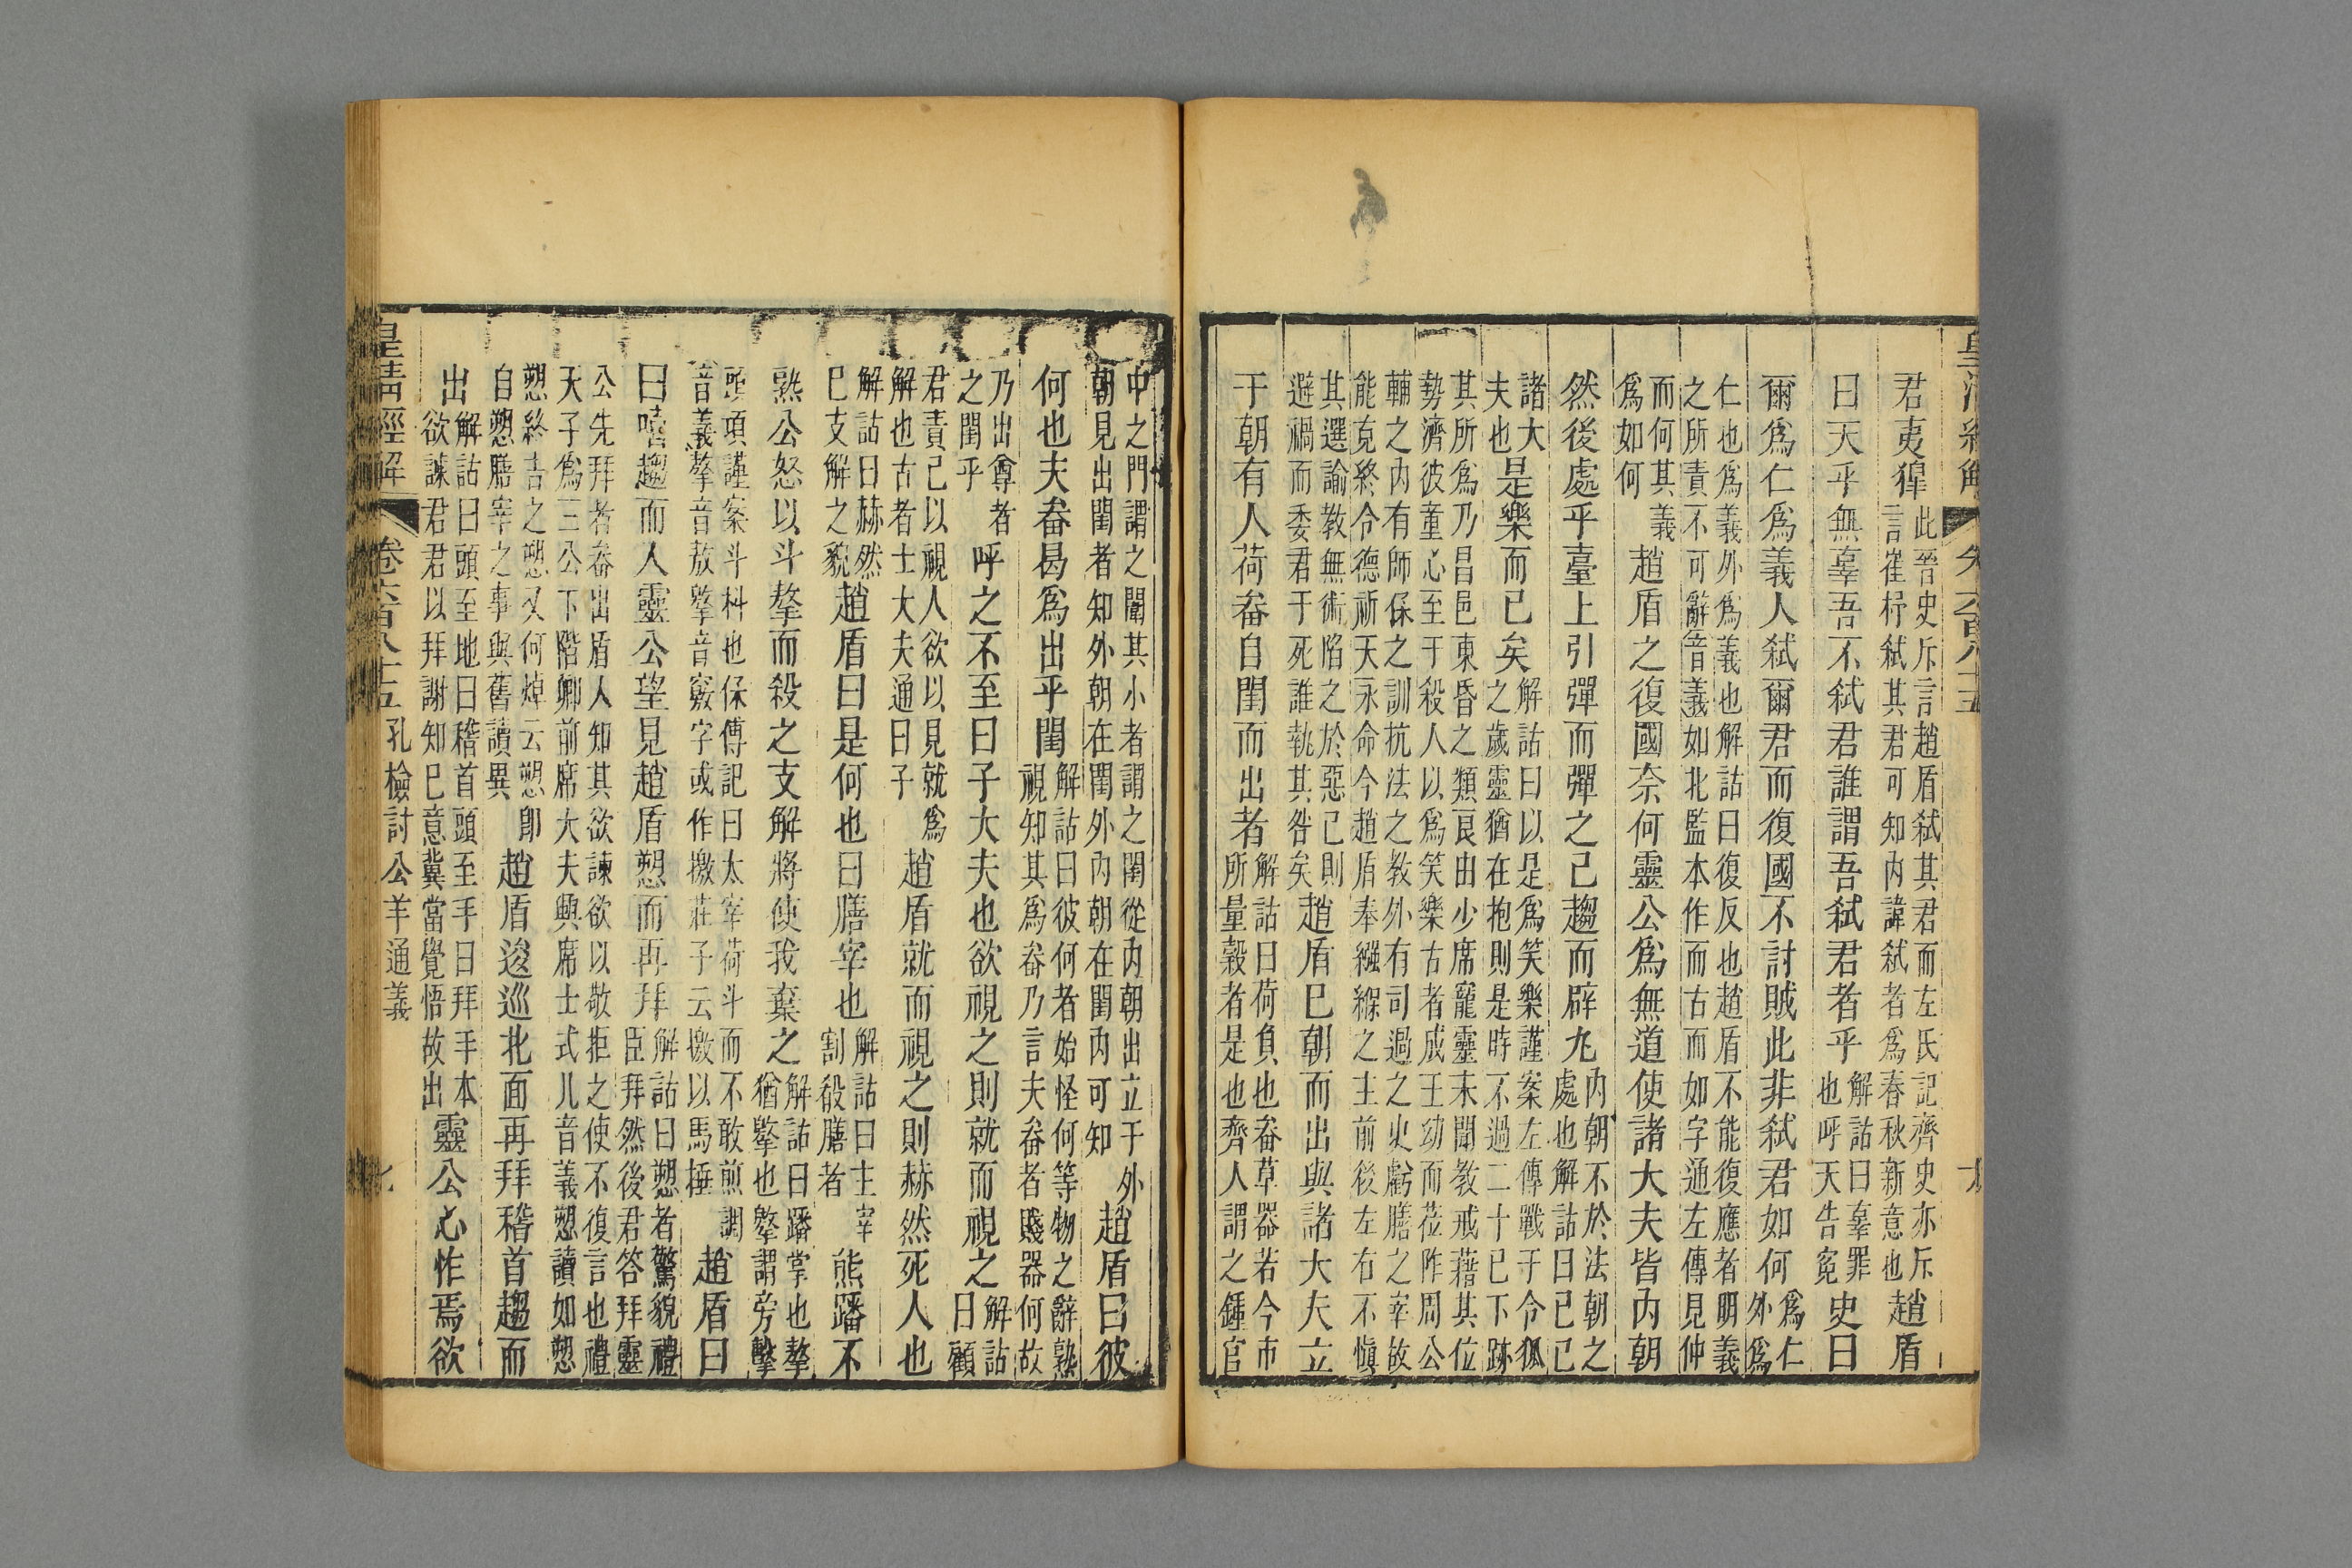 皇清經解　卷六百八十五
君夷獆此晉史斥言趙盾弒其君而左氏記齊史亦斥言崔杼弒其君可知內諱弒者爲春秋新意也趙盾
曰天乎無辜吾不弒君誰謂吾弒君者乎解詁曰辜罪也呼天告冤史曰
爾爲仁爲義人弒爾君而復國不討賊此非弒君如何爲仁外爲
仁也爲義外爲義也解詁曰復反也趙盾不能復應者明義之所責不可辭音義如北監本作而古而如字通左傳見仲
而何其義爲如何趙盾之復國奈何靈公爲無道使諸大夫皆內朝
然後處乎臺上引彈而彈之已趨而辟丸內朝不於法朝之處也解詁曰已已
諸大夫也是樂而已矣解詁曰以是爲笑樂謹案左傳戰于令狐之歲靈猶在抱則是時不過二十已下跡
其所爲乃昌邑東昏之類良由少席寵靈未聞教戒藉其位勢濟彼童心至于殺人以爲笑樂古者成王幼而莅阼周公
輔之內有師保之訓抗法之教外有司過之史虧膳之宰故能克終令德祈天永命今趙盾奉襁緥之主前後左右不慎
其選諭教無術陷之於惡已則避禍而委君于死誰執其咎矣趙盾已朝而出與諸大夫立
于朝有人荷畚自閨而出者解詁曰荷負也畚草器若今市所量穀者是也齊人謂之鍾官
中之門謂之闈其小者謂之閨從內朝出立于外朝見出閨者知外朝在閨外內朝在閨內可知趙盾曰彼
何也夫畚曷爲出乎閨解詁曰彼何者始怪何等物之辭熟視知其爲畚乃言夫畚者賤器何故
乃出尊者之閨乎呼之不至曰子大夫也欲視之則就而視之解詁曰顧
君責己以視人欲以見就爲解也古者士大夫通曰子趙盾就而視之則赫然死人也
解詁曰赫然已支解之貌趙盾曰是何也曰膳宰也解詁曰主宰割殽膳者熊蹯不
熟公怒以斗摮而殺之支解將使我棄之解詁曰蹯掌也摮猶擊也摮謂旁擊
頭項謹案斗枓也保傅記曰太宰荷斗而不敢煎調音義摮音敖擊音竅字或作撽莊子云撽以馬捶趙盾曰
曰嘻趨而入靈公望見趙盾愬而再拜解詁曰愬者驚貌禮臣拜然後君答拜靈
公先拜者畚出盾入知其欲諫欲以敬拒之使不復言也禮天子爲三公下階卿前席大夫興席士式几音義愬讀如愬
愬終吉之愬又何焯云愬卽自愬膳宰之事與舊讀異趙盾逡巡北面再拜稽首趨而
出解詁曰頭至地曰稽首頭至手曰拜手本欲諫君君以拜謝知已意冀當覺悟故出靈公心怍焉欲
皇清經解　卷六百八十五　孔檢討公羊通義